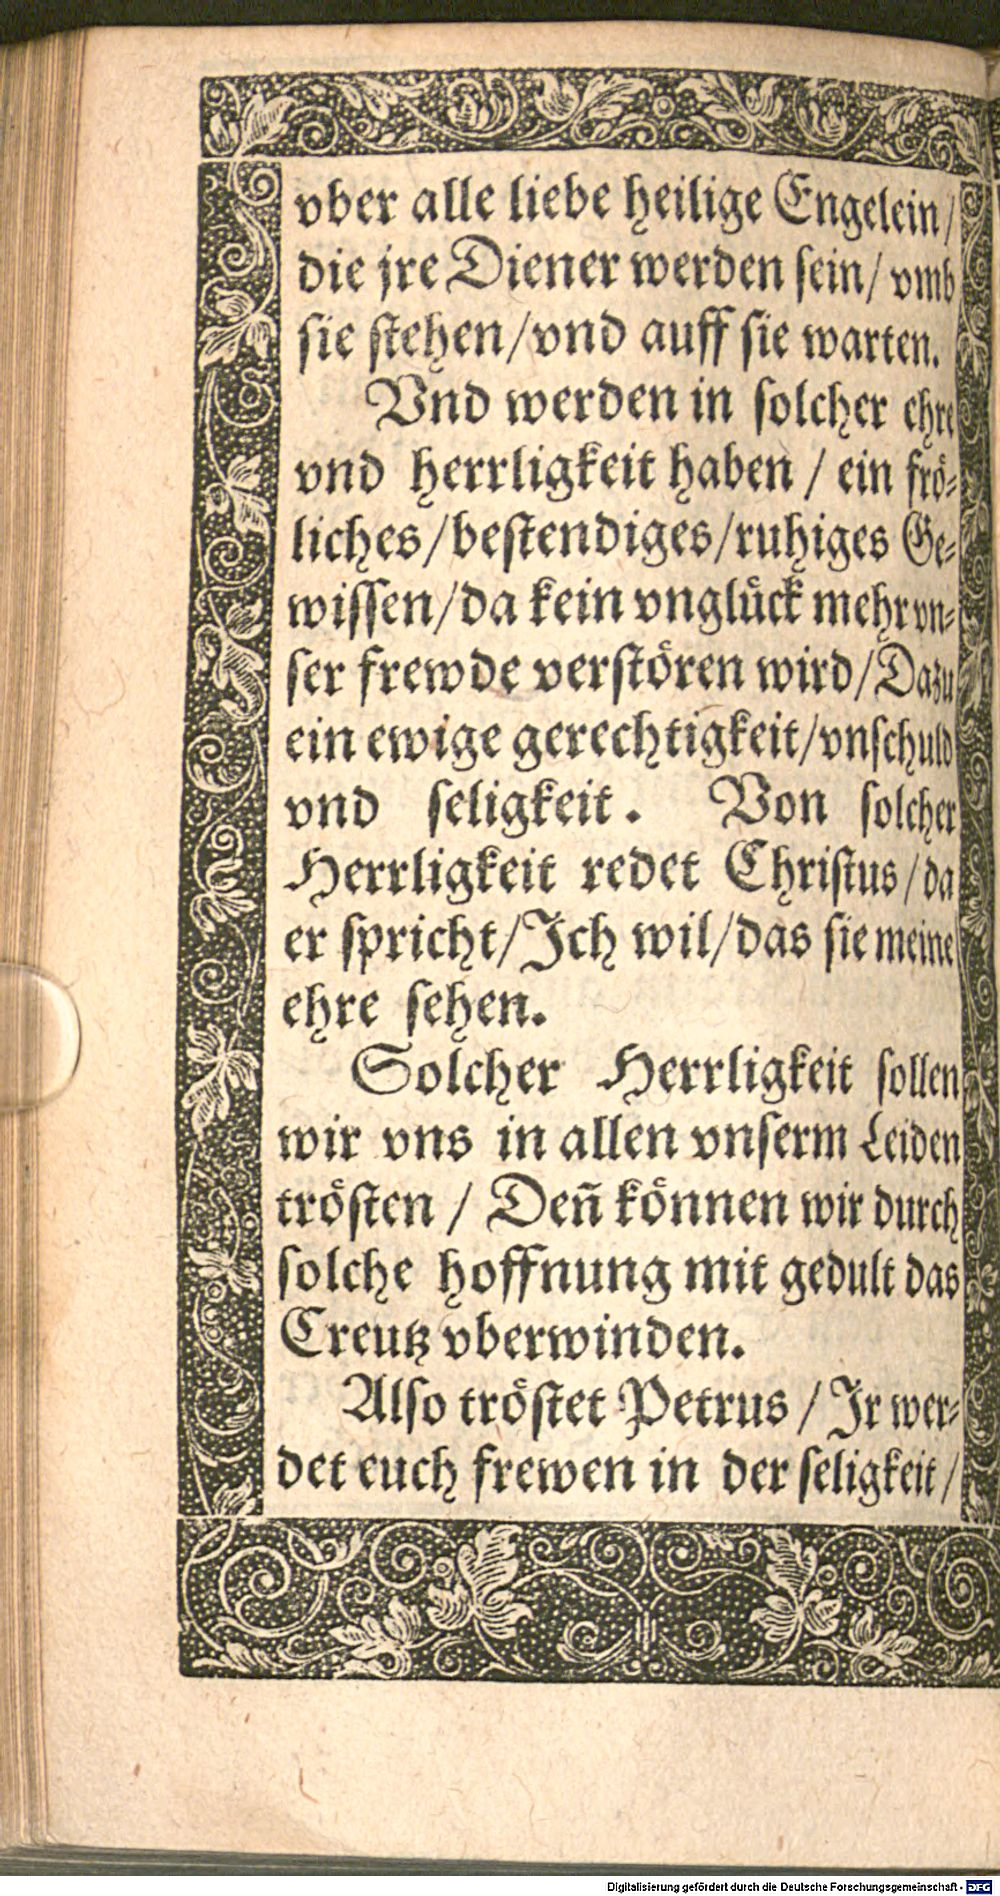 vber alle liebe heilige Engelein/
die jre Diener werden sein/ vmb
sie stehen/vnd auff sie warten.
Vnd werden in solcher ehre
vnd herrligkeit haben / ein frö⸗
liches/bestendiges/ruhiges Ge⸗
wissen/da kein vnglück mehr vn⸗
ser frewde verstören wird/Dazu
ein ewige gerechtigkeit/vnschuld
vnd seligkeit. Von solcher
Herrligkeit redet Christus/da
er spricht/Ich wil/das sie meine
ehre sehen.
Solcher Herrligkeit sollen
wir vns in allen vnserm Leiden
trösten / Deñ können wir durch
solche hoffnung mit gedult das
Creutz vberwinden.
Also tröstet Petrus / Ir wer⸗
det euch frewen in der seligkeit/
Digitalisierung gefördert durch die Deutsche Forschungsgemeinschaft - DFG